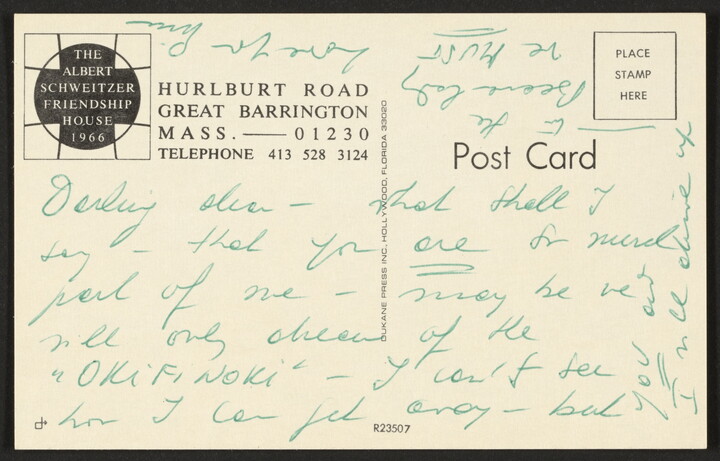 THE
ALBERT
SCHWEITZER
FRIENDSHIP
HOUSE
1966
HURLBURT ROAD
GREAT BARRINGTON
MASS. — 01230
TELEPHONE 413 528 3124
PLACE
STAMP
HERE
Post Card
DUKANE PRESS INC., HOLLYWOOD, FLORIDA 33020
Darling dear – what shall I
say – that you are so much
part of me – may be we
will only dream of the
"OKIFINOKI" – I can't see
how I can get away – but
You and
I will drive up
to the
we MUST
love you
R23507